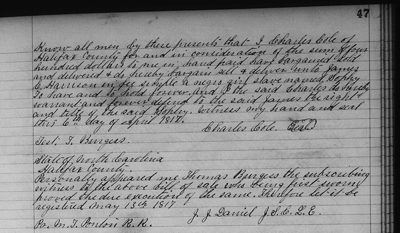 47
Know all men by these presents that I Charles Cole of
Halifax County for and in consideration of the sum of four
hundred dollars to me in hand paid have bargained sold
and delivered & do hereby bargain sell & deliver unto James
C Harrison in fee simple a negro girl slave named Sophy
To have and to hold forever, and I the said Charles do hereby
warrant and forever defend to the said James the right
and title of the said Sophy. Witness my hand and seal
this 6th day of April 1817.
Charles Cole Seal
Test. T. Burges.
State of North Carolina
Halifax County.
Personally appeared me Thomas Burges the subscribing
witness to the above bill of sale who being first sworn
proved the due execution of the same. Therefore let it be
registered May 18th 1817
J. J. Daniel J.S.C.L.E.
Pr. M. T. Ponton R.R.